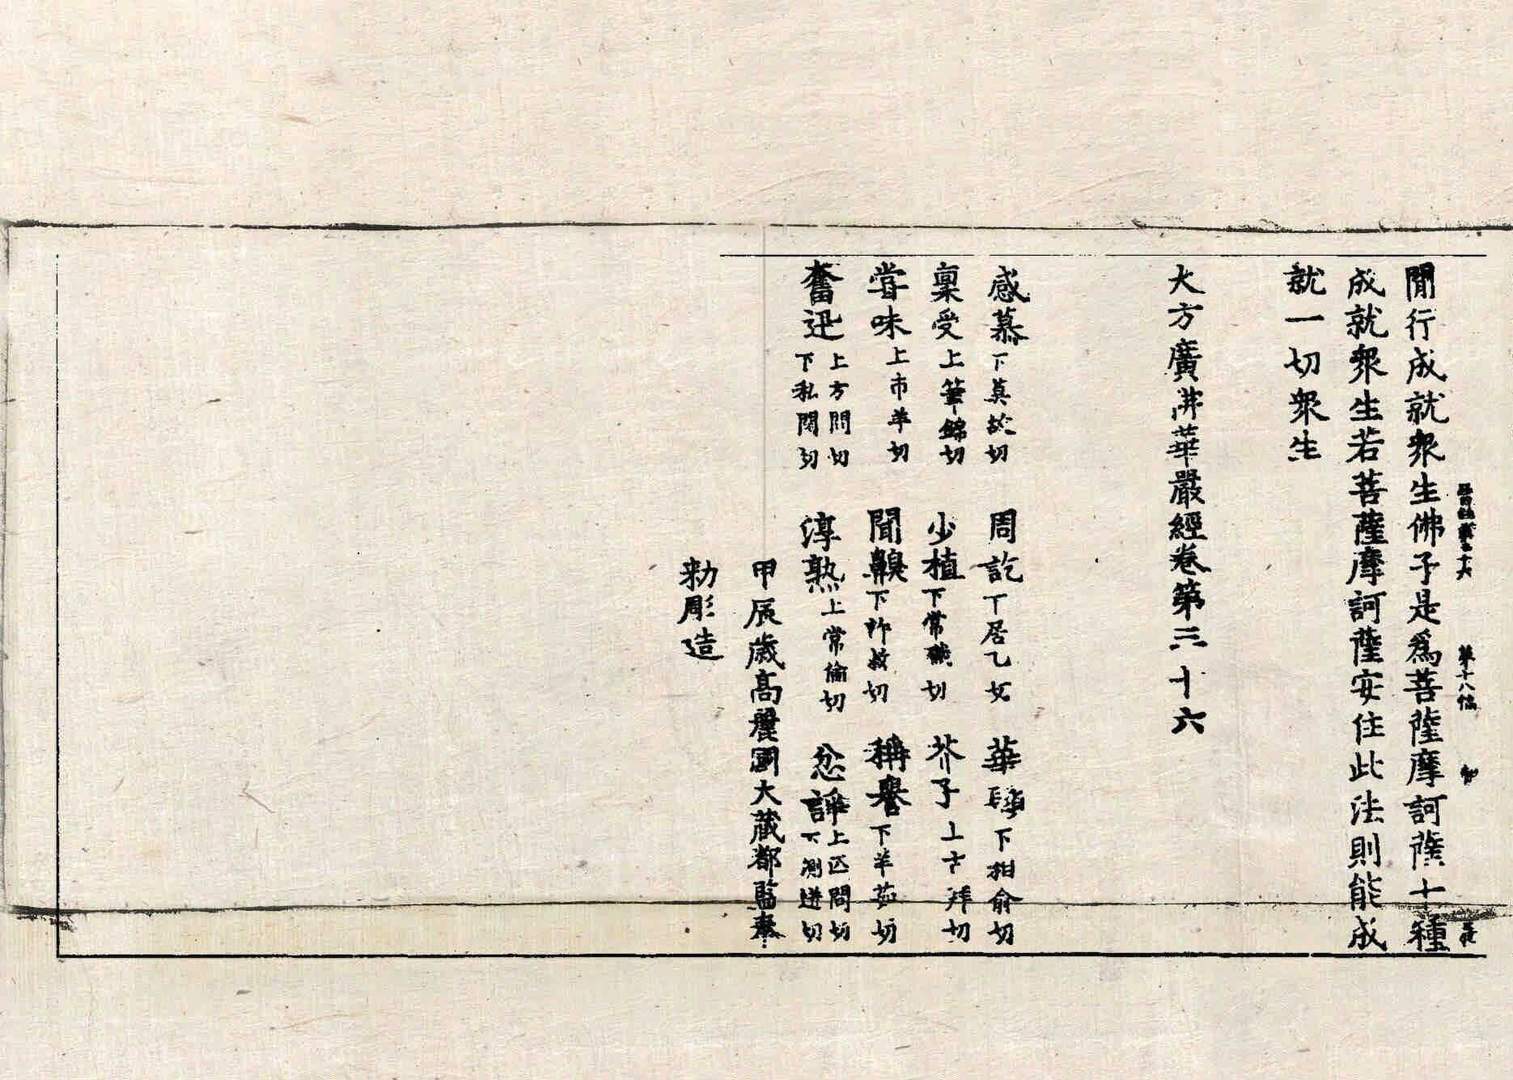 閒行成就衆生佛子是爲菩薩摩訶薩十種
成就衆生若菩薩摩訶薩安住此法則能成
就一切衆生
大方廣佛華嚴經卷第三十六
感慕下莫故切 周訖下居乙切 華鬘下切
稟受上筆錦切 少植下常職切 芥子上古拜切
甞味上市羊切 聞齅下許救切 稱譽下羊茹切
奮迅上方問切下私閏切 淳熟上常倫切 忿諍上匹問切下測迸切
甲辰歲高麗國大藏都監奉
勑彫造